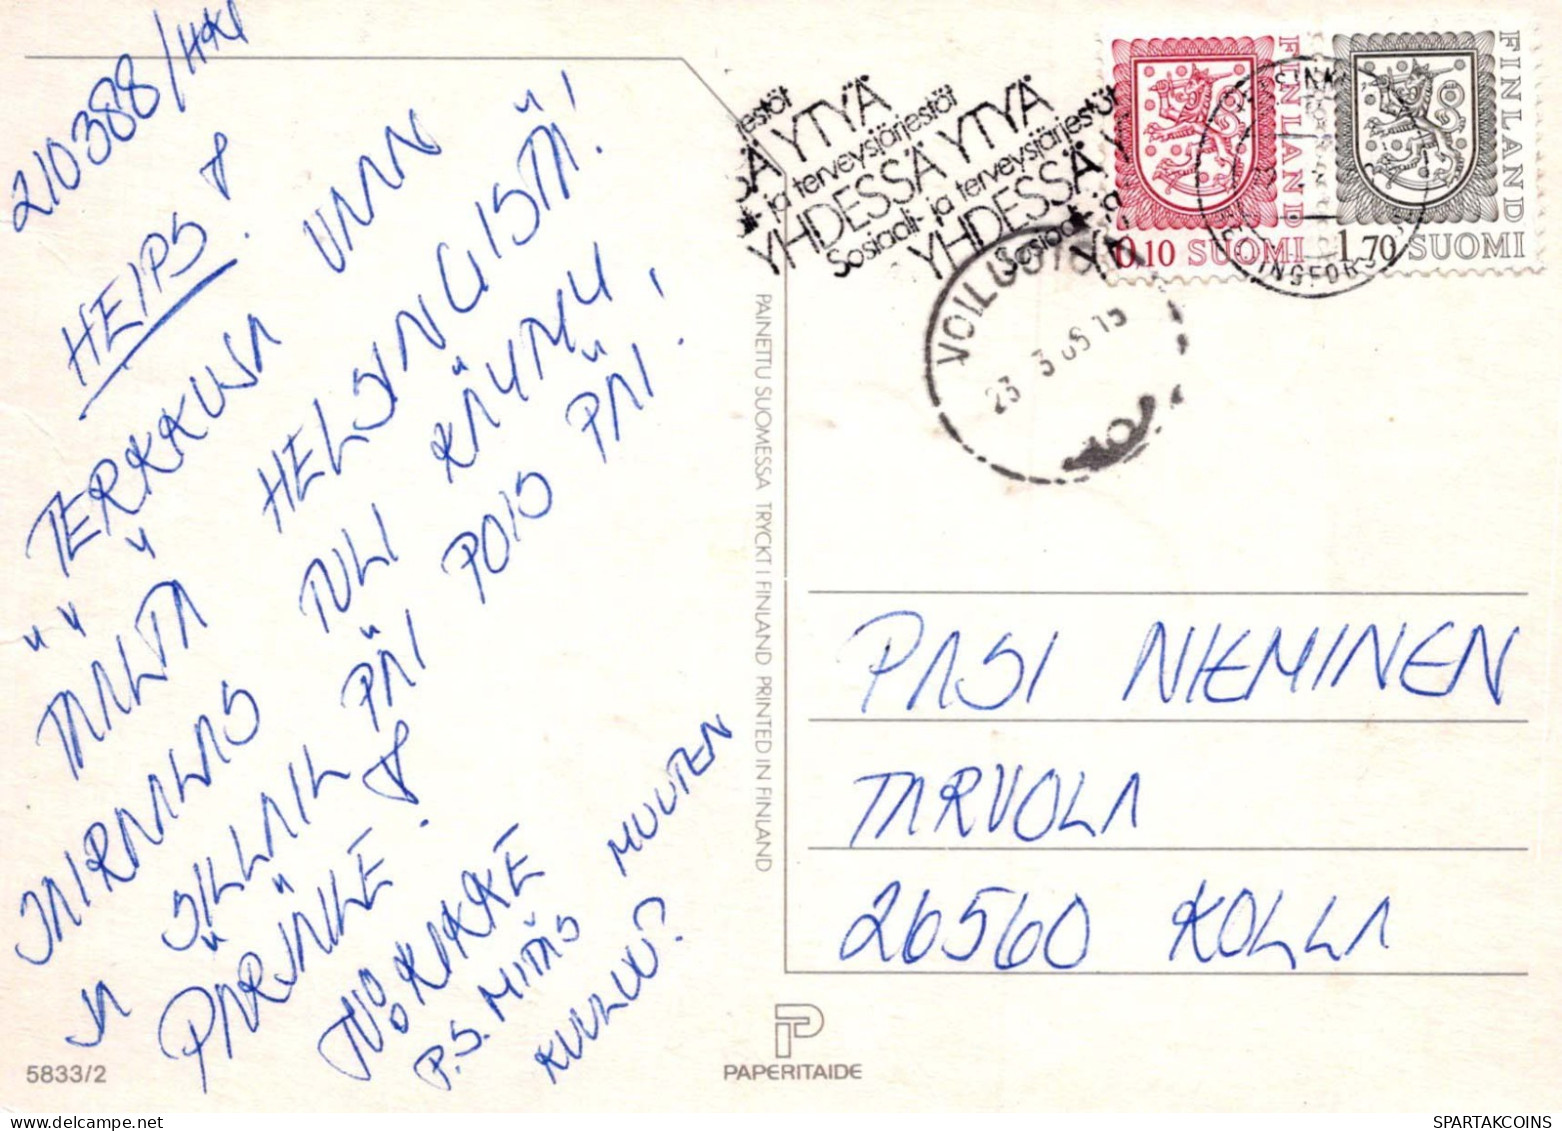 210388/HKI
HEIPS!
TERKKUSIA VAAN
TÄÄLTÄ HELSINGISTÄ!
TULI KÄYMY
JA SILLAIL PÄI POIS PÄI!
PÄRJÄILE!
P.S. MITÄS MUUTEN
KUULUU?
5833/2
PAINETTU SUOMESSA TRYCKT I FINLAND PRINTED IN FINLAND
PAPERITAIDE
YHDESSÄ YTYÄ
Sosiaali- ja terveysjärjestöt
YHDESSÄ YTYÄ
Sosiaali- ja terveysjärjestöt
FINLAND
0,10 SUOMI
FINLAND
1,70 SUOMI
HELSINKI
HELSINGFORS
23 3 88 15
PASI NIEMINEN
TARVOLA
26560 KOLLA
SPARTAKCOINS.COM